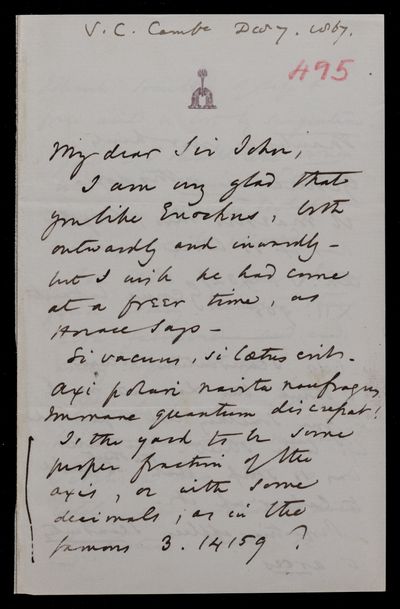 V. C. Cambe Dec 7. 1867.
495
My dear Sir John,
I am very glad that
you like Enochus, both
outwardly and inwardly -
but I wish he had come
at a freer time, as
Horace says -
Si vacuus, si laetus erit -
Axi polari navita naufragus
Immane quantum discrepat!
Is the yard to be some
proper fraction of the
axis, or with some
decimals, as in the
famous 3.14159 ?